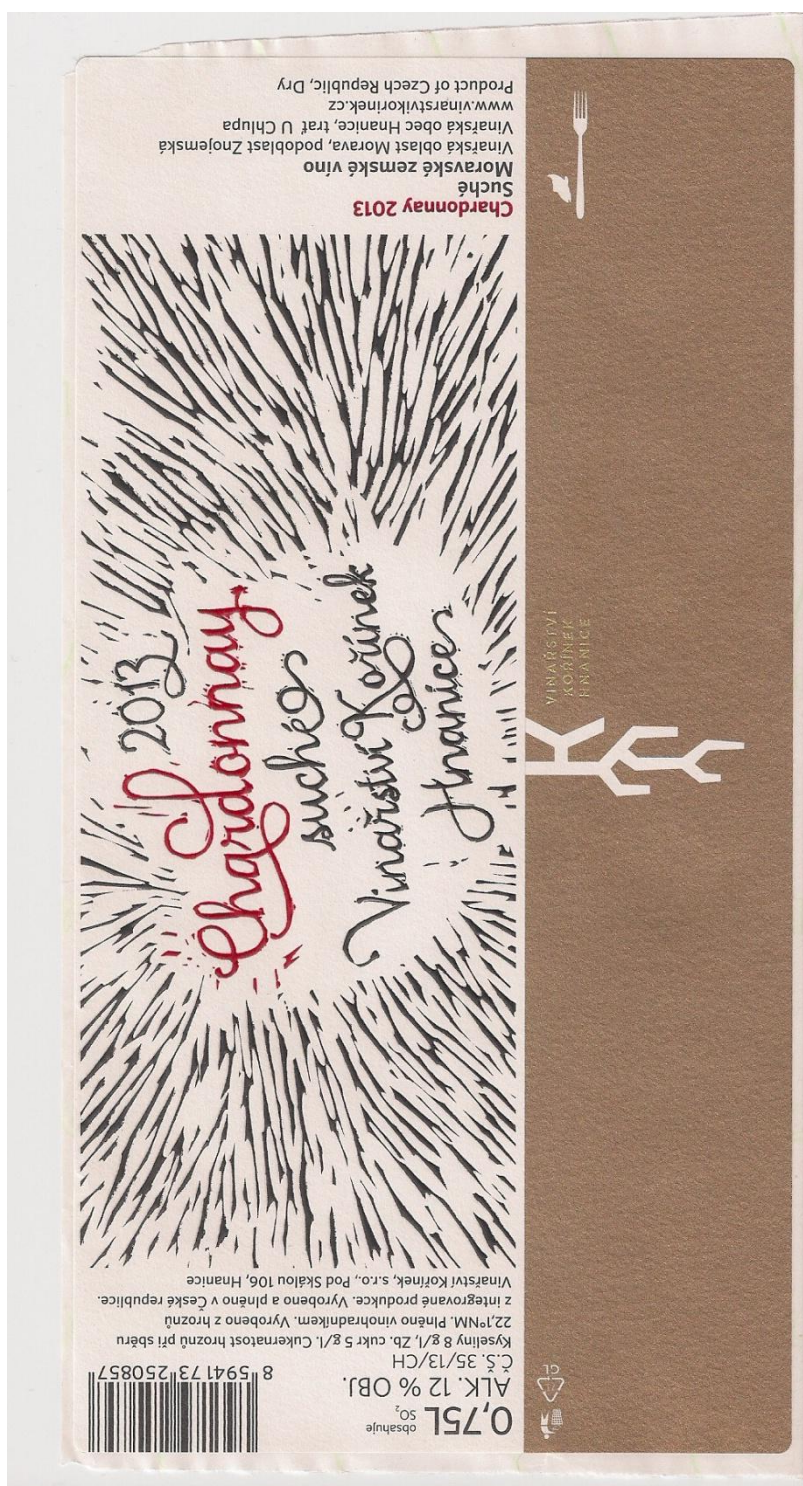 Chardonnay 2013
Suché
Moravské zemské víno
Vinařská oblast Morava, podoblast Znojemská
Vinařská obec Hnanice, trať U Chlupa
www.vinarstvikorinek.cz
Product of Czech Republic, Dry
2013
Chardonnay
suché
Vinařství Kořínek
Hnanice
VINAŘSTVÍ
KOŘÍNEK
HNANICE
0,75L
obsahuje
SO₂
ALK. 12 % OBJ.
Č.Š. 35/13/CH
Kyseliny 8 g/l, Zb. cukr 5 g/l. Cukernatost hroznů při sběru
22,°NM. Plněno vinohradníkem. Vyrobeno z hroznů
z integrované produkce. Vyrobeno a plněno v České republice.
Vinařství Kořínek, s.r.o., Pod Skálou 106, Hnanice
8 594173 250857
GL